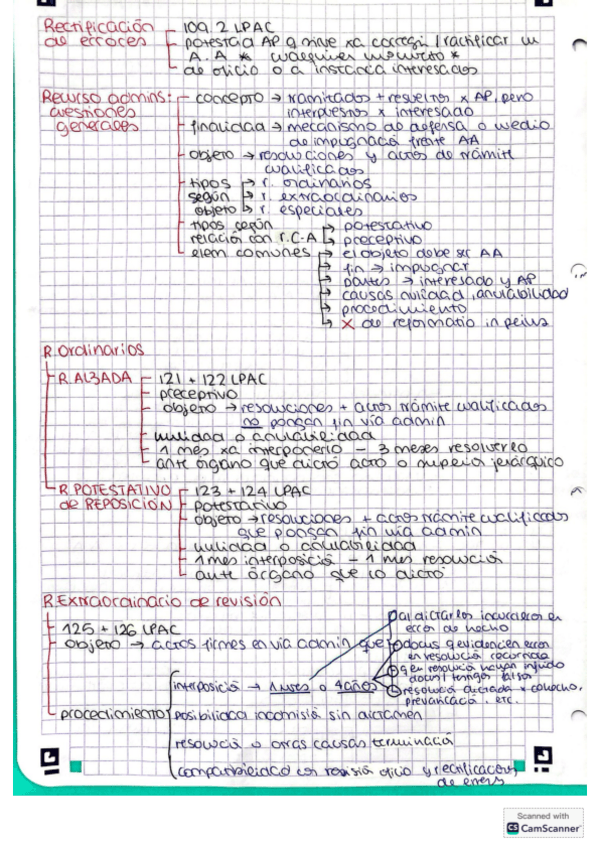 Rectificación - 109.2 LPAC
de errores - potestad AP q sirve xa corregir/rectificar un
A.A * cualquier momento *
de oficio o a instancia interesados
Recurso admins: - concepto → tramitados + resueltos x AP, pero
cuestiones interpuestos x interesado
generales - finalidad → mecanismo de defensa o medio
de impugnació frente AA
- objeto → resoluciones y actos de trámite
cualificados
- tipos → r. ordinarios
según → r. extraordinarios
objeto → r. especiales
- tipos según → potestativo
relación con r.C-A → preceptivo
- elem comunes → el objeto debe ser AA
→ fin → impugnar
→ partes → interesado y AP
→ causas nulidad, anulabilidad
→ procedimiento
→ X de reformatio in peius
R. Ordinarios
R. ALZADA - 121 + 122 LPAC
- preceptivo
- objeto → resoluciones + actos trámite cualificados
no pongan fin vía admin
- nulidad o anulabilidad
- 1 mes xa interponerlo - 3 meses resolverlo
- ante órgano que dictó acto o superior jerárquico
R. POTESTATIVO - 123 + 124 LPAC
de REPOSICIÓN - potestativo
- objeto → resoluciones + actos trámite cualificados
que pongan fin vía admin
- nulidad o anulabilidad
- 1 mes interposició - 1 mes resolució
- ante órgano que lo dictó
R. Extraordinario de revisión
- 125 + 126 LPAC
- objeto → actos firmes en vía admin que
al dictarlos incurrieron en
error de hecho
docus q evidencien error
en resolució recurrida
q en resolució hayan influido
docus / testigos falsos
resolució dictada x cohecho,
prevaricació, etc.
- procedimiento
interposició → 1 mes o 4 años
posibilidad inadmisió sin dictamen
resolució o otras causas terminació
compatibilidad con revisió oficio y rectificación
de errores
Scanned with
CS CamScanner